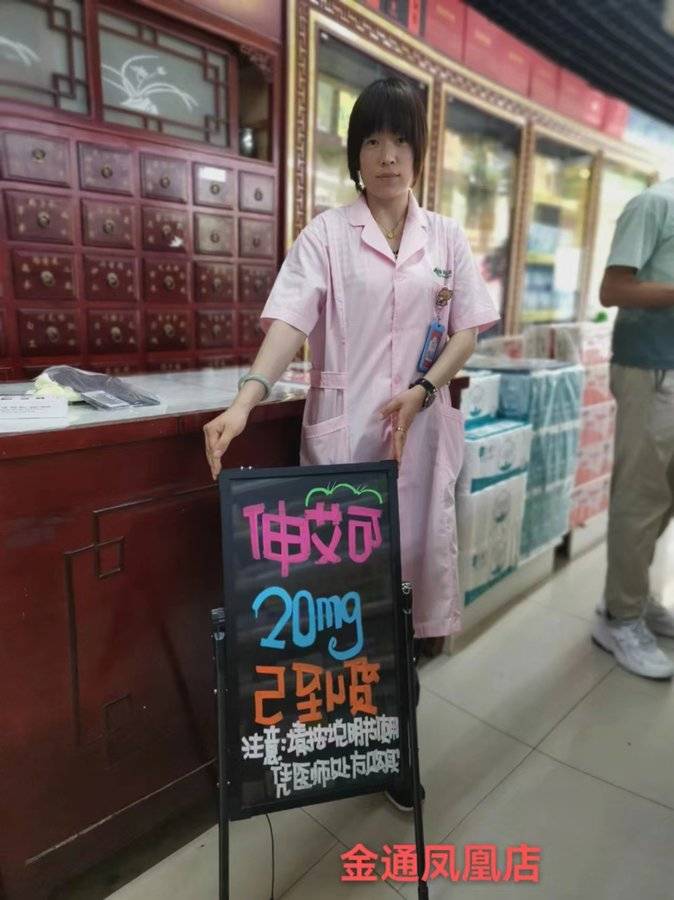 伸艾可
20mg
已到货
注意:请按说明书使用
凭医师处方购买
金通凤凰店